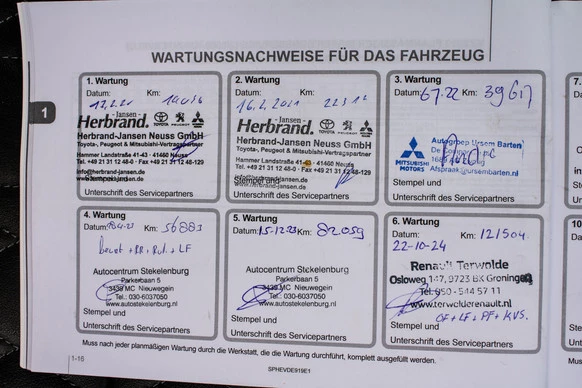 WARTUNGSNACHWEISE FÜR DAS FAHRZEUG
1
1. Wartung
Datum: Km:
- Jansen -
Herbrand. TOYOTA PEUGEOT
Herbrand-Jansen Neuss GmbH
Toyota-, Peugeot & Mitsubishi-Vertragspartner
Hammer Landstraße 41-43 · 41460 Neuss
Tel. +49 21 31 12 48-0 · Fax +49 21 31 12 48-129
herbrand-jansen.de
Unterschrift des Servicepartners
2. Wartung
Datum: Km:
16.2.2021 22312
- Jansen -
Herbrand. TOYOTA PEUGEOT
Herbrand-Jansen Neuss GmbH
Toyota-, Peugeot & Mitsubishi-Vertragspartner
Hammer Landstraße 41-43 · 41460 Neuss
Tel. +49 21 31 12 48-0 · Fax +49 21 31 12 48-129
www.herbrand-jansen.de
Stempel und
Unterschrift des Servicepartners
3. Wartung
Datum: Km:
MITSUBISHI
MOTORS
Autogroep Ursem Barten
Afspraak@ursembarten.nl
Stempel und
Unterschrift des Servicepartners
4. Wartung
Datum: Km: 56883
Autocentrum Stekelenburg
Parkerbaan 5
3439 MC Nieuwegein
Tel.: 030-6037050
www.autostekelenburg.nl
Stempel und
Unterschrift des Servicepartners
5. Wartung
Datum: 15-12-23 Km: 82059
Autocentrum Stekelenburg
Parkerbaan 5
3439 MC Nieuwegein
Tel.: 030-6037050
www.autostekelenburg.nl
Stempel und
Unterschrift des Servicepartners
6. Wartung
Datum: Km: 121504
22-10-24
Renault Terwolde
Osloweg 147, 9723 BX Groningen
Tel. 050 - 544 57 11
www.terwolderenault.nl
OF+LF+PF+KVS.
Stempel und
Unterschrift des Servicepartners
7.
Da
10
Muss nach jeder planmäßigen Wartung durch die Werkstatt, die die Wartung durchführt, komplett ausgefüllt werden.
1-16
SPHEVDE919E1